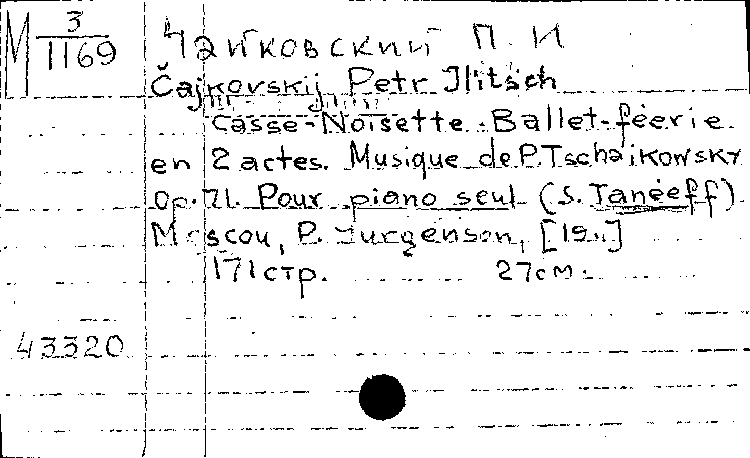 М 3/1169
Чайковский П. И
Čajkovskij Petr Ilitsch
Casse-Noisette. Ballet-féerie
en 2 actes. Musique de P. Tschaikowsky
Op. 71. Pour piano seul (S. Taneeff)
Moscou, P. Jurgenson, [19..]
171 стр. 27 см.
43320